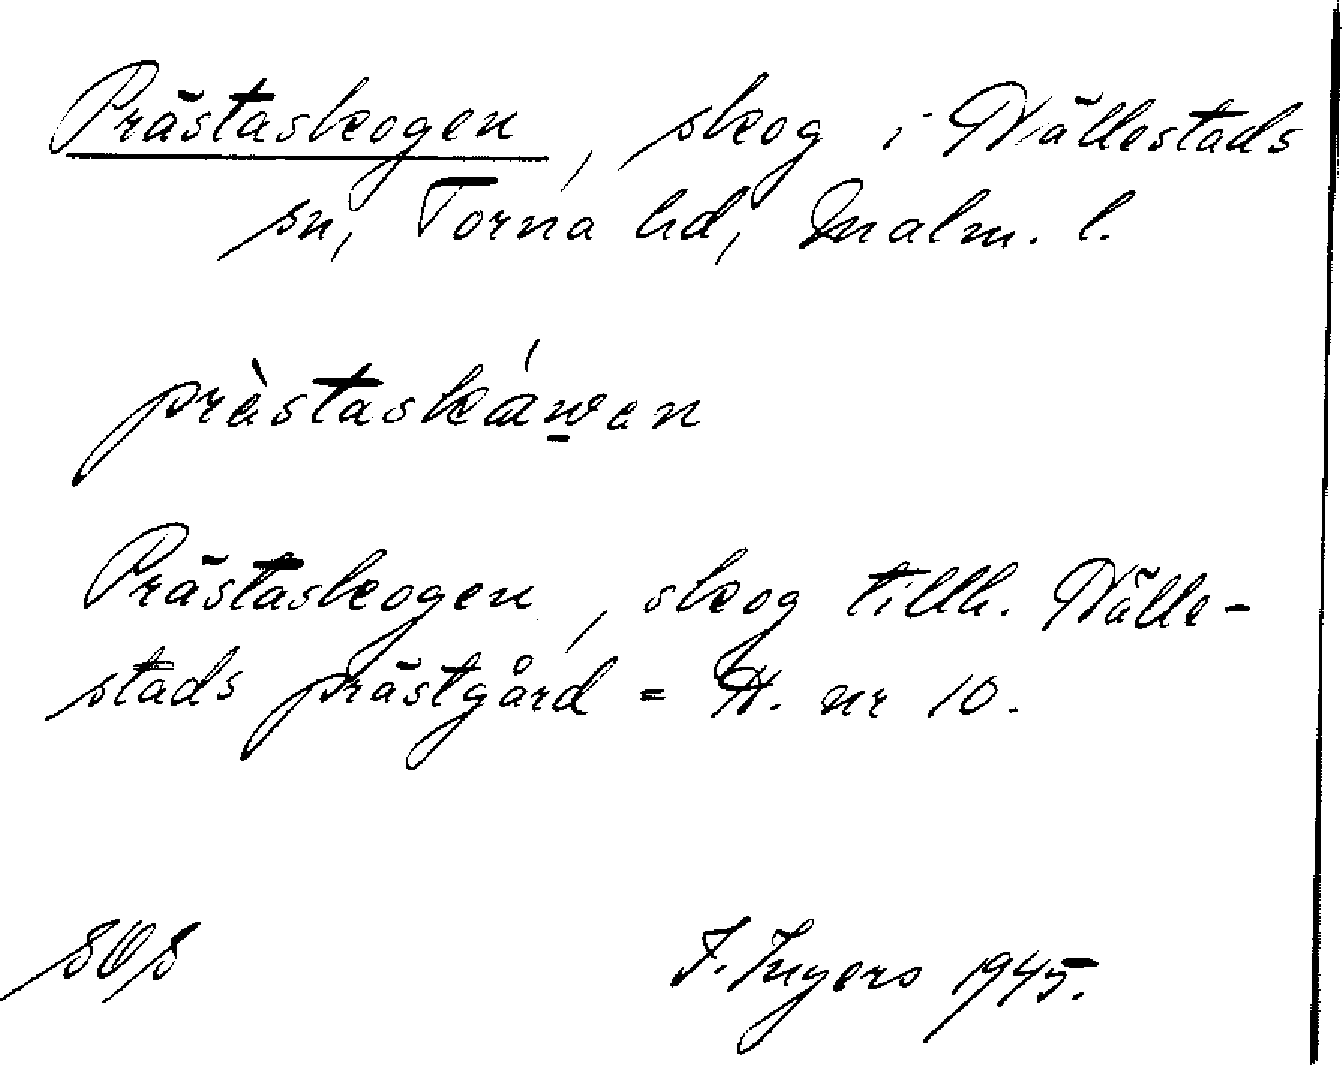 Prästaskogen, skog i Hällestads
sn, Torna hd, Malm. l.
prästaskáwen
Prästaskogen, skog tillh. Hälle-
stads prästgård = H. nr 10.
I. Ingers 1945.